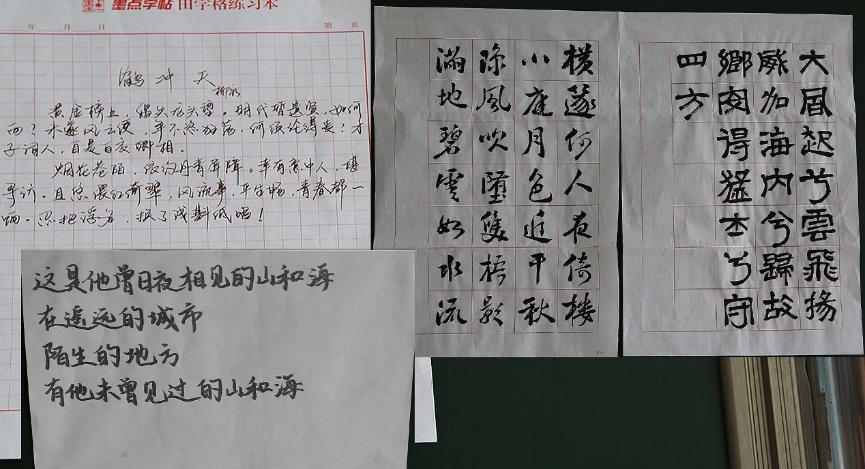 墨点字帖 田字格练习本
年 月 日 第 页
鹤冲天 柳永
黄金榜上,偶失龙头望。明代暂遗贤,如何
向?未遂风云便,争不恣狂荡。何须论得丧?才
子词人,自是白衣卿相。
烟花巷陌,依约丹青屏障。幸有意中人,堪
寻访。且恁偎红倚翠,风流事,平生畅。青春都一
饷。忍把浮名,换了浅斟低唱!
这是他曾日夜相见的山和海
在遥远的城市
陌生的地方
有他未曾见过的山和海
横篴何人夜倚楼
小庭月色近中秋
涼風吹墮雙梧影
滿地碧雲如水流
大風起兮雲飛揚
威加海内兮歸故
鄉安得猛士兮守
四方